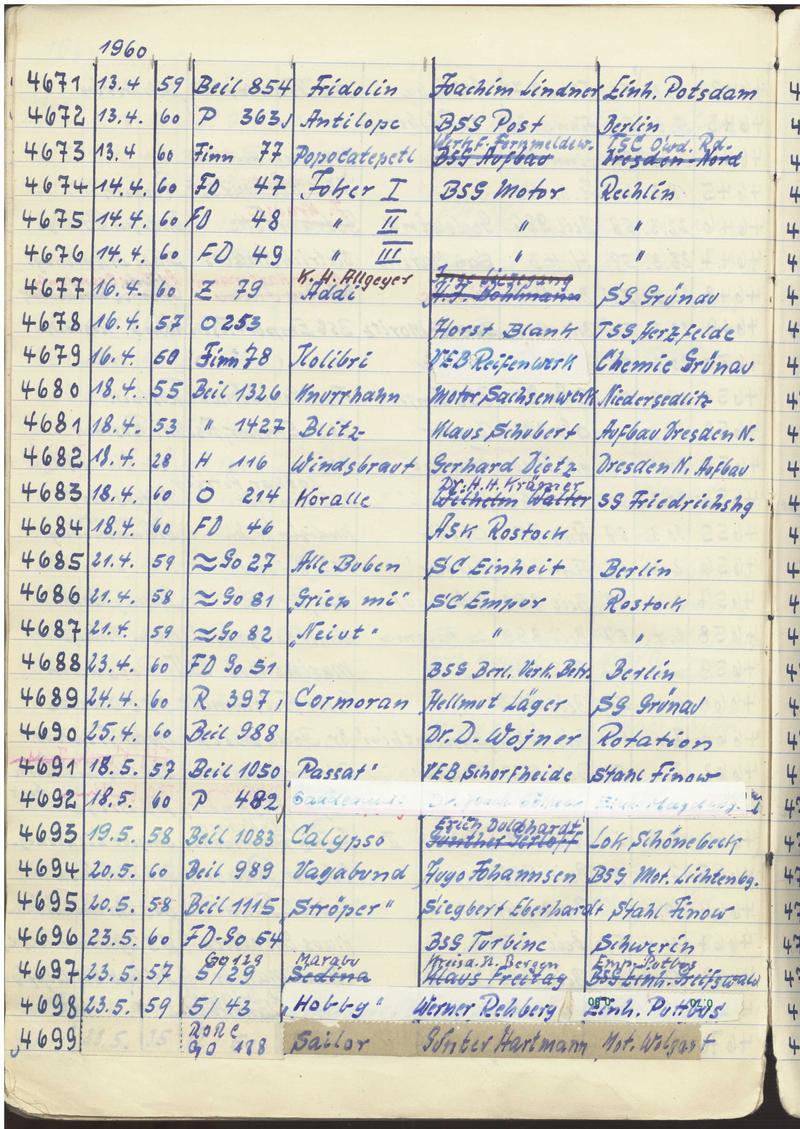 1960
4671 13.4 59 Beil 854 Fridolin Joachim Lindner Einh. Potsdam
4672 13.4. 60 P 363 Antilope BSG Post Berlin
4673 13.4 60 Finn 77 Popocatepetl BSG Aufbau Dresden-Nord
4674 14.4. 60 FD 47 Foker I BSG Motor Rechlin
4675 14.4. 60 FD 48 " II " "
4676 14.4. 60 FD 49 " III " "
K. H. Allgeyer
4677 16.4. 60 Z 79 Addi SG Grünau
4678 16.4. 57 O 253 Horst Blank TSG Herzfelde
4679 16.4. 60 Finn 78 Kolibri VEB Reifenwerk Chemie Grünau
4680 18.4. 55 Beil 1326 Knurrhahn Motor Sachsenwerk Niedersedlitz
4681 18.4. 53 " 1427 Blitz Klaus Schubert Aufbau Dresden N.
4682 18.4. 28 H 116 Windsbraut Gerhard Dietz Dresden N. Aufbau
Dr. H. H. Krämer
4683 18.4. 60 O 214 Koralle Wilhelm Walter SG Friedrichshg
4684 18.4. 60 FD 46 ASK Rostock
4685 21.4. 59 ≈Go 27 Alle Buben SC Einheit Berlin
4686 21.4. 58 ≈Go 81 "Griep mi" SC Empor Rostock
4687 21.4. 59 ≈Go 82 "Neiut" " "
4688 23.4. 60 FD Go 51 BSG Berl. Verk. Betr. Berlin
4689 24.4. 60 R 397 Cormoran Hellmut Läger SG Grünau
4690 25.4. 60 Beil 988 Dr. D. Wojner Rotation
4691 18.5. 57 Beil 1050 "Passat" VEB Schorfheide Stahl Finow
4692 18.5. 60 P 482
4693 19.5. 58 Beil 1083 Calypso Lok Schönebeck
4694 20.5. 60 Beil 989 Vagabund Hugo Johannsen BSG Mot. Lichtenbg.
4695 20.5. 58 Beil 1115 Ströper" Siegbert Eberhardt Stahl Finow
4696 23.5. 60 FD-Go 64 BSG Turbine Schwerin
Go 129 Marabu Bergen Emp. Putbus
4697 23.5. 57 5/29 Sedina Klaus Freitag BSG Einh. Greifswald
4698 23.5. 59 5/43 "Hobby" Werner Rehberg Einh. Puttbus
4699 RORC GO 188 Sailor Günter Hartmann Mot. Wolgast